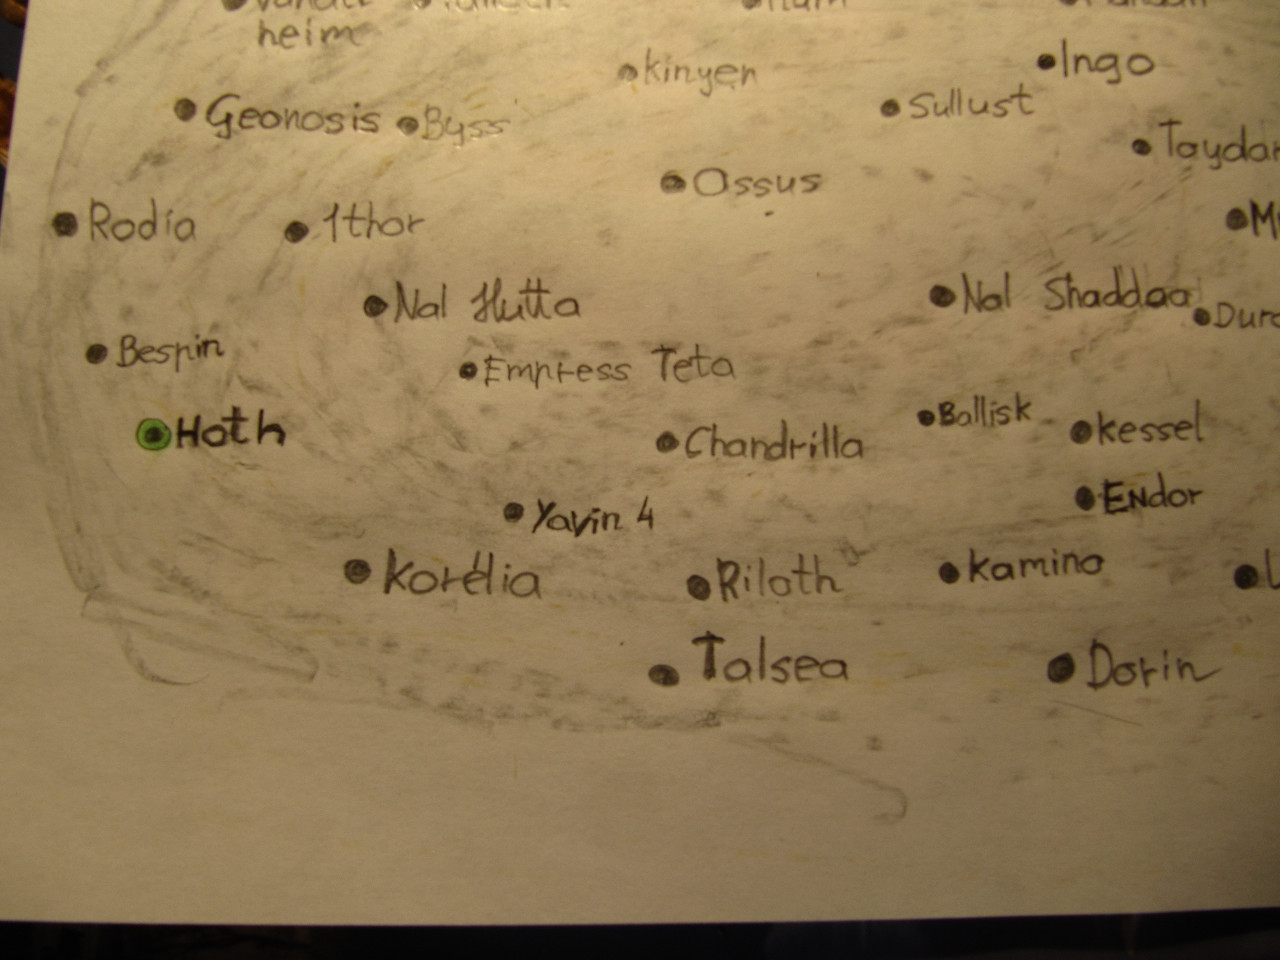 heim
kinyen
Ingo
Geonosis
Byss
Sullust
Ossus
Rodia
Ithor
Nal Hutta
Nal Shaddaa
Bespin
Empress Teta
Hoth
Chandrilla
Ballisk
kessel
Yavin 4
Endor
Korélia
Riloth
kamino
Talsea
Dorin